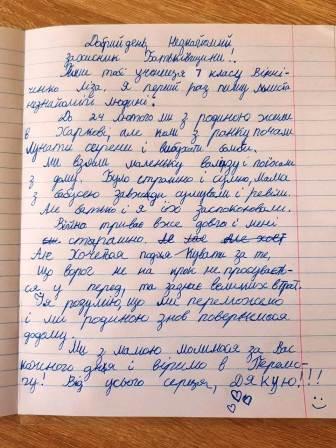 Добрий день, Незнайомий
захисник Батьківщини!.
Пише тобі учениця 7 класу Вікні-
ченко Ліза. Я перший раз пишу листа
незнайомій людині.
До 24 лютого ми з родиною жили
в Харкові, але коли з ранку почали
лунати сирени і вибухи бомби.
Ми взяли маленьку валізу і поїхали
з дому. Було страшно і сумно, мама
з бабусею завжди сумували і ревіли.
Але батько і я їх заспокоювали.
Війна триває вже довго і мені
старашно. Але хост
Але хочеться подякувати за те,
що ворог не на крок не просуваєть-
ся у перед, та зазнає великих втрат.
Я розумію що ми переможемо
і ми родиною знов повернемося
додому.
Ми з мамою молимося за Вас
кожного дня і віримо в Перемо-
гу! Від усього серця, ДЯКУЮ!!!